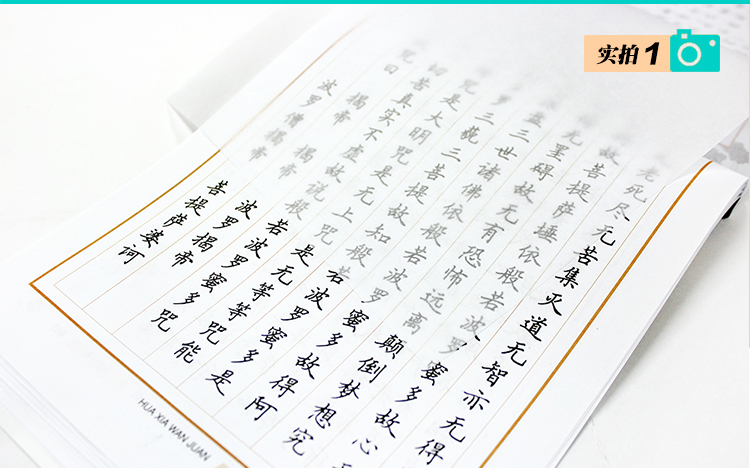 实拍1
老死尽无苦集灭道无智亦无得
故菩提萨埵依般若波罗蜜多故心
无罣碍故无有恐怖远离颠倒梦想究
三世诸佛依般若波罗蜜多故得阿
罗三藐三菩提故知般若波罗蜜多是
咒是大明咒是无上咒是无等等咒能
切苦真实不虚故说般若波罗蜜多咒
咒曰 揭帝 揭帝 波罗揭帝
波罗僧揭帝 菩提萨婆诃
HUA XIA WAN JUAN